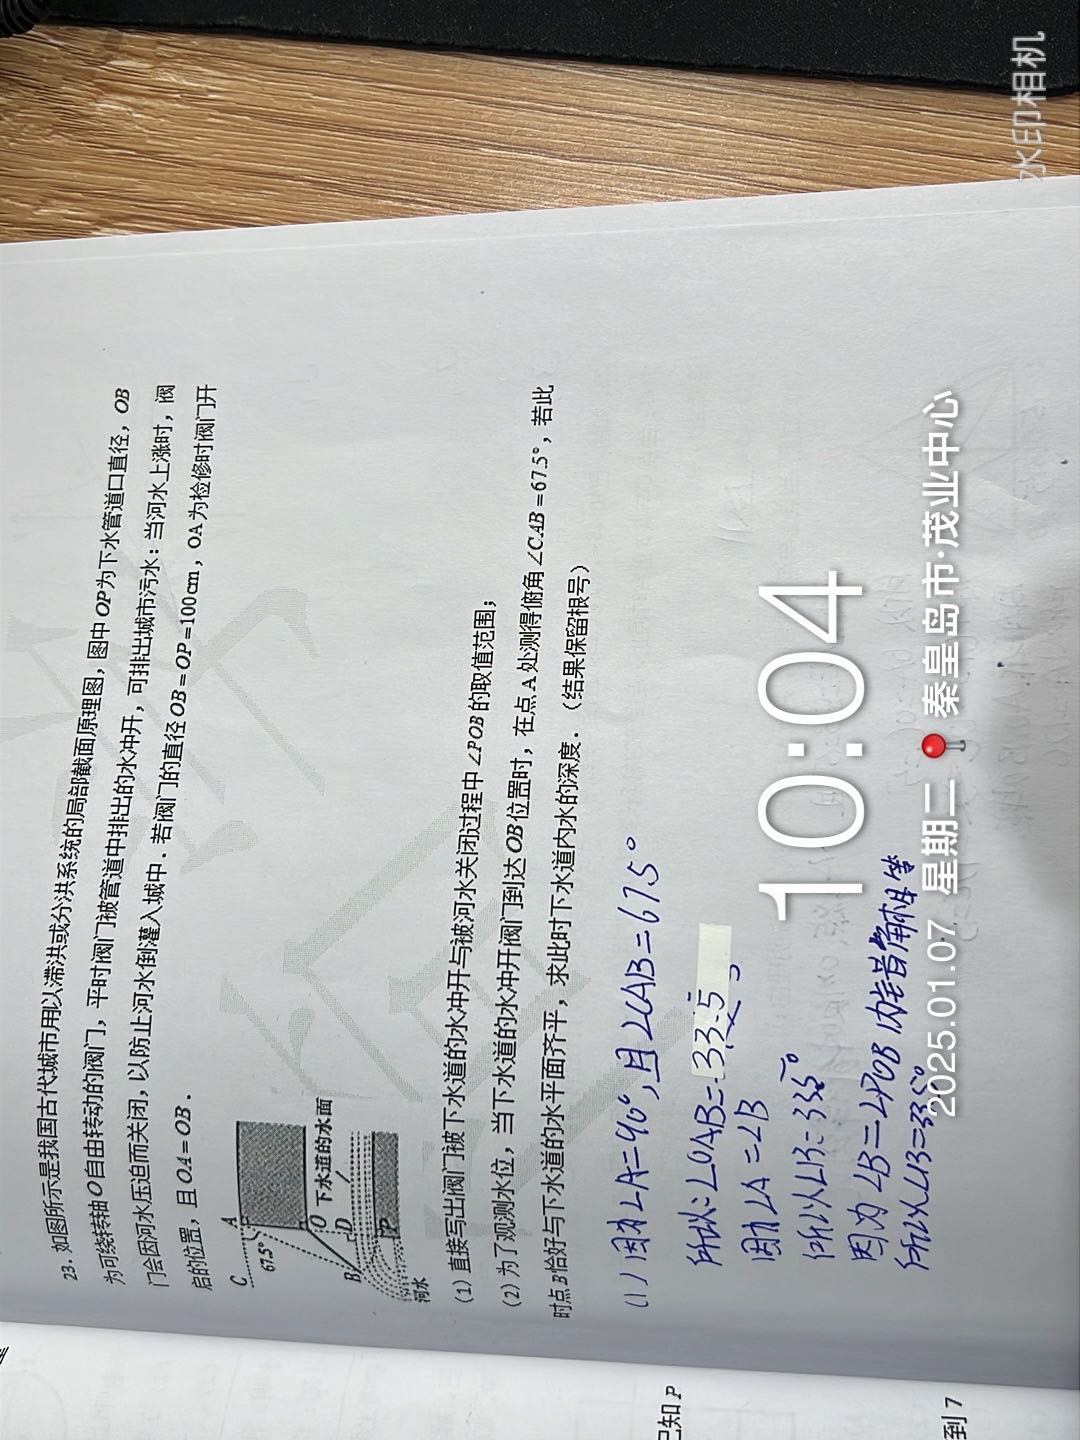 23. 如图所示是我国古代城市用以滞洪或分洪系统的局部截面原理图，图中 OP 为下水管道口直径，OB
为可绕转轴 O 自由转动的阀门，平时阀门被管道中排出的水冲开，可排出城市污水：当河水上涨时，阀
门会因河水压迫而关闭，以防止河水倒灌入城中．若阀门的直径 OB=OP=100cm，OA 为检修时阀门开
启的位置，且 OA=OB．
C
A
67.5°
O
下水道的水面
B
D
P
河水
(1) 直接写出阀门被下水道的水冲开与被河水关闭过程中 ∠POB 的取值范围；
(2) 为了观测水位，当下水道的水冲开阀门到达 OB 位置时，在点 A 处测得俯角 ∠CAB=67.5°，若此
时点 B 恰好与下水道的水平面齐平，求此时下水道内水的深度．（结果保留根号）
(1) 因为 ∠A=90°，且 ∠CAB=67.5°
所以=∠OAB=33.5
因为 ∠A=∠B
所以 ∠B=33.5°
因为 ∠B=∠POB 内错角相等
所以 ∠B=33.5°
已知 P
到 7
10:04
2025.01.07 星期二 秦皇岛市·茂业中心
水印相机